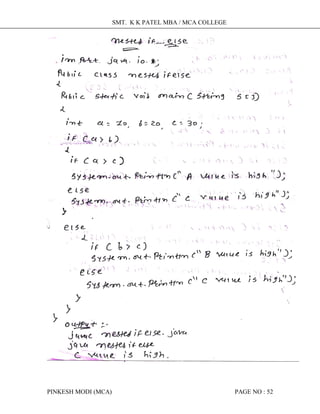 SMT. K K PATEL MBA / MCA COLLEGE
nested if_else
import java.io.*;
Public class nestedifelse
{
Public static void main(String s[])
{
int a=20, b=20, c=30;
if (a>b)
{
if (a>c)
System.out.Println("A value is high");
else
System.out.Println("c value is high");
}
else
{
if (b>c)
System.out.Println("B value is high");
else
System.out.Println("c value is high");
}
}
}
output :-
javac nestedifelse.java
java nestedifelse
c value is high.
PINKESH MODI (MCA) PAGE NO : 52